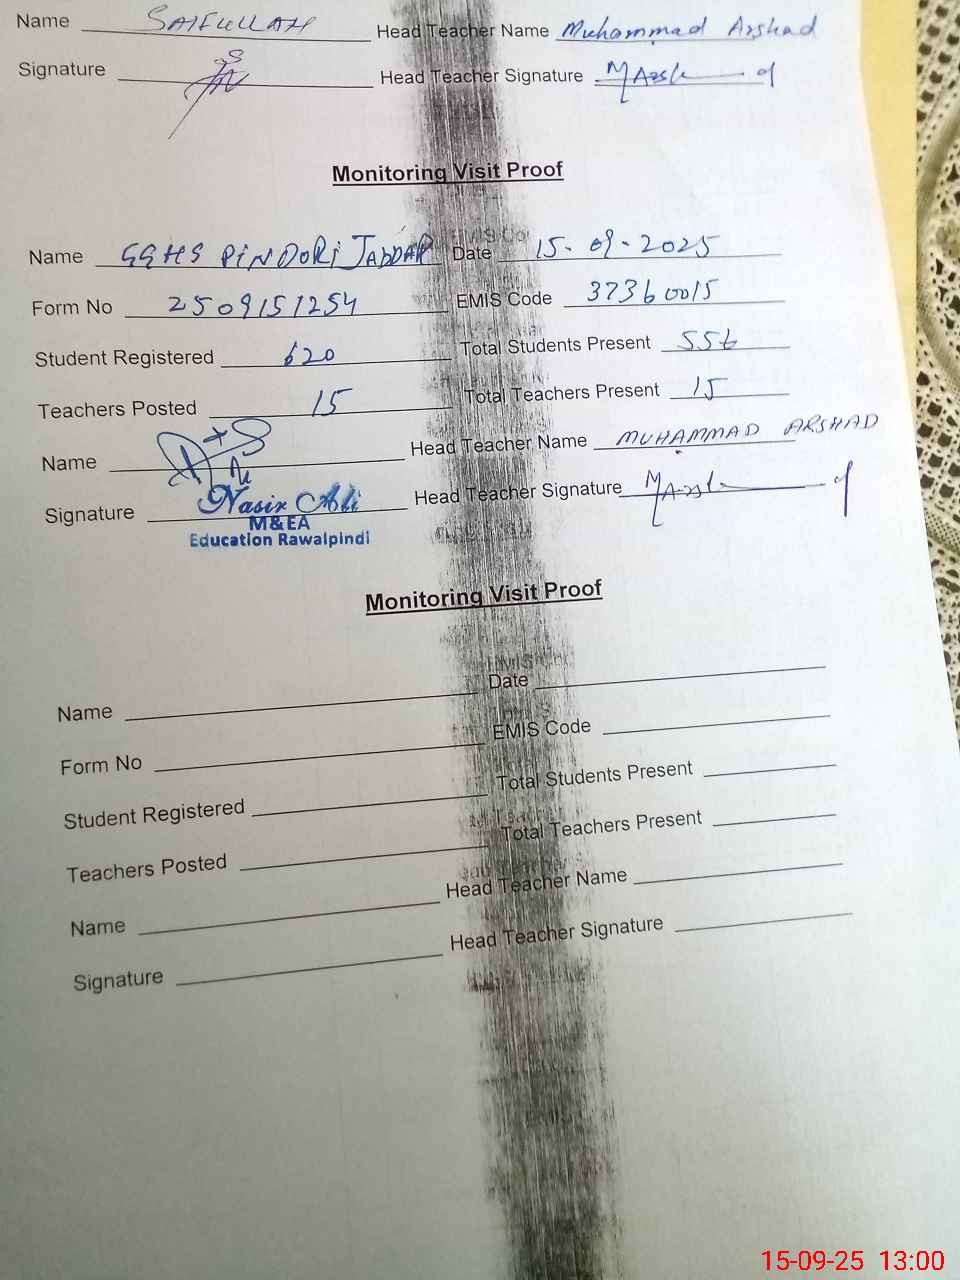 Name SAIFULLAH Head Teacher Name Muhammad Arshad
Signature Head Teacher Signature MArsh d
Monitoring Visit Proof
Name GGHS PINDORi JABDAR Date 15-09-2025
Form No 2509151254 EMIS Code 37360015
Student Registered 620 Total Students Present 556
Teachers Posted 15 Total Teachers Present 15
Name Head Teacher Name MUHAMMAD ARSHAD
Signature Nasir Ali Head Teacher Signature MArsh d
M&EA
Education Rawalpindi
Monitoring Visit Proof
Name Date
Form No EMIS Code
Student Registered Total Students Present
Teachers Posted Total Teachers Present
Name Head Teacher Name
Signature Head Teacher Signature
15-09-25 13:00